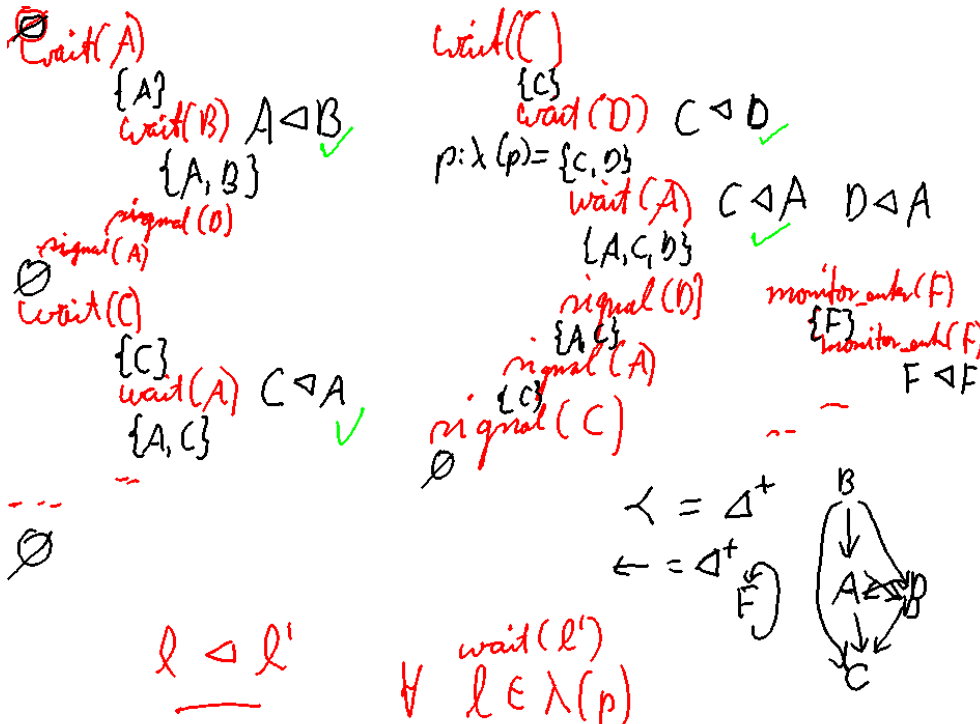 ∅
wait(A)
{A}
wait(B) A ⊲ B ✓
{A, B}
signal(B)
signal(A)
∅
wait(C)
{C}
wait(A) C ⊲ A ✓
{A, C}
--
---
∅
wait(C)
{C}
wait(D) C ⊲ D ✓
p: λ(p) = {C, D}
wait(A) C ⊲ A ✓ D ⊲ A
{A, C, D}
signal(D)
{A, C}
signal(A)
{C}
signal(C)
∅
monitor_enter(F)
{F}
monitor_enter(F)
F ⊲ F
--
≺ = ⊲⁺
← = ⊲⁺
F
B
A D
C
l ⊲ l' ∀ wait(l')
l ∈ λ(p)